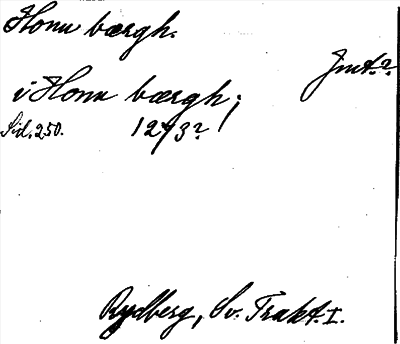 Honu bærgh.
Jmt.?
i Honu bærgh;
Sid. 250. 1273?
Rydberg, Sv. Trakt. I.